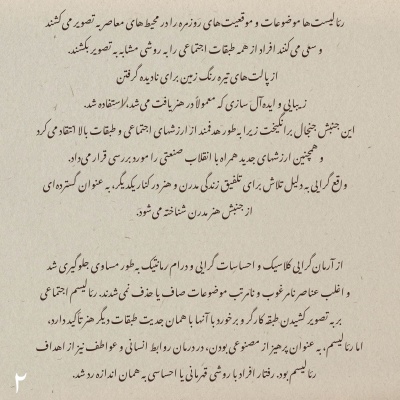 رئالیست‌ها موضوعات و موقعیت‌های روزمره را در محیط‌های معاصر به تصویر می‌کشند
و سعی می‌کنند افراد از همه طبقات اجتماعی را به روشی مشابه به تصویر بکشند.
از پالت‌های تیره رنگ زمین برای نادیده گرفتن
زیبایی و ایده‌آل سازی که معمولاً در هنر یافت می‌شد، استفاده شد.
این جنبش جنجال برانگیخت زیرا به طور هدفمند از ارزشهای اجتماعی و طبقات بالا انتقاد می‌کرد
و همچنین ارزشهای جدید همراه با انقلاب صنعتی را مورد بررسی قرار می‌داد.
واقع گرایی به دلیل تلاش برای تلفیق زندگی مدرن و هنر در کنار یکدیگر، به عنوان گسترده‌ای
از جنبش هنر مدرن شناخته می‌شود.
از آرمان‌گرایی کلاسیک و احساسات گرایی و درام رمانتیک به طور مساوی جلوگیری شد
و اغلب عناصر نامرغوب و نامرتب موضوعات صاف یا حذف نمی‌شدند. رئالیسم اجتماعی
بر به تصویر کشیدن طبقه کارگر و برخورد با آنها با همان جدیت طبقات دیگر هنر تأکید دارد،
اما رئالیسم، به عنوان پرهیز از مصنوعی بودن، در درمان روابط انسانی و عواطف نیز از اهداف
رئالیسم بود. رفتار افراد با روشی قهرمانی یا احساسی به همان اندازه رد شد.
۲